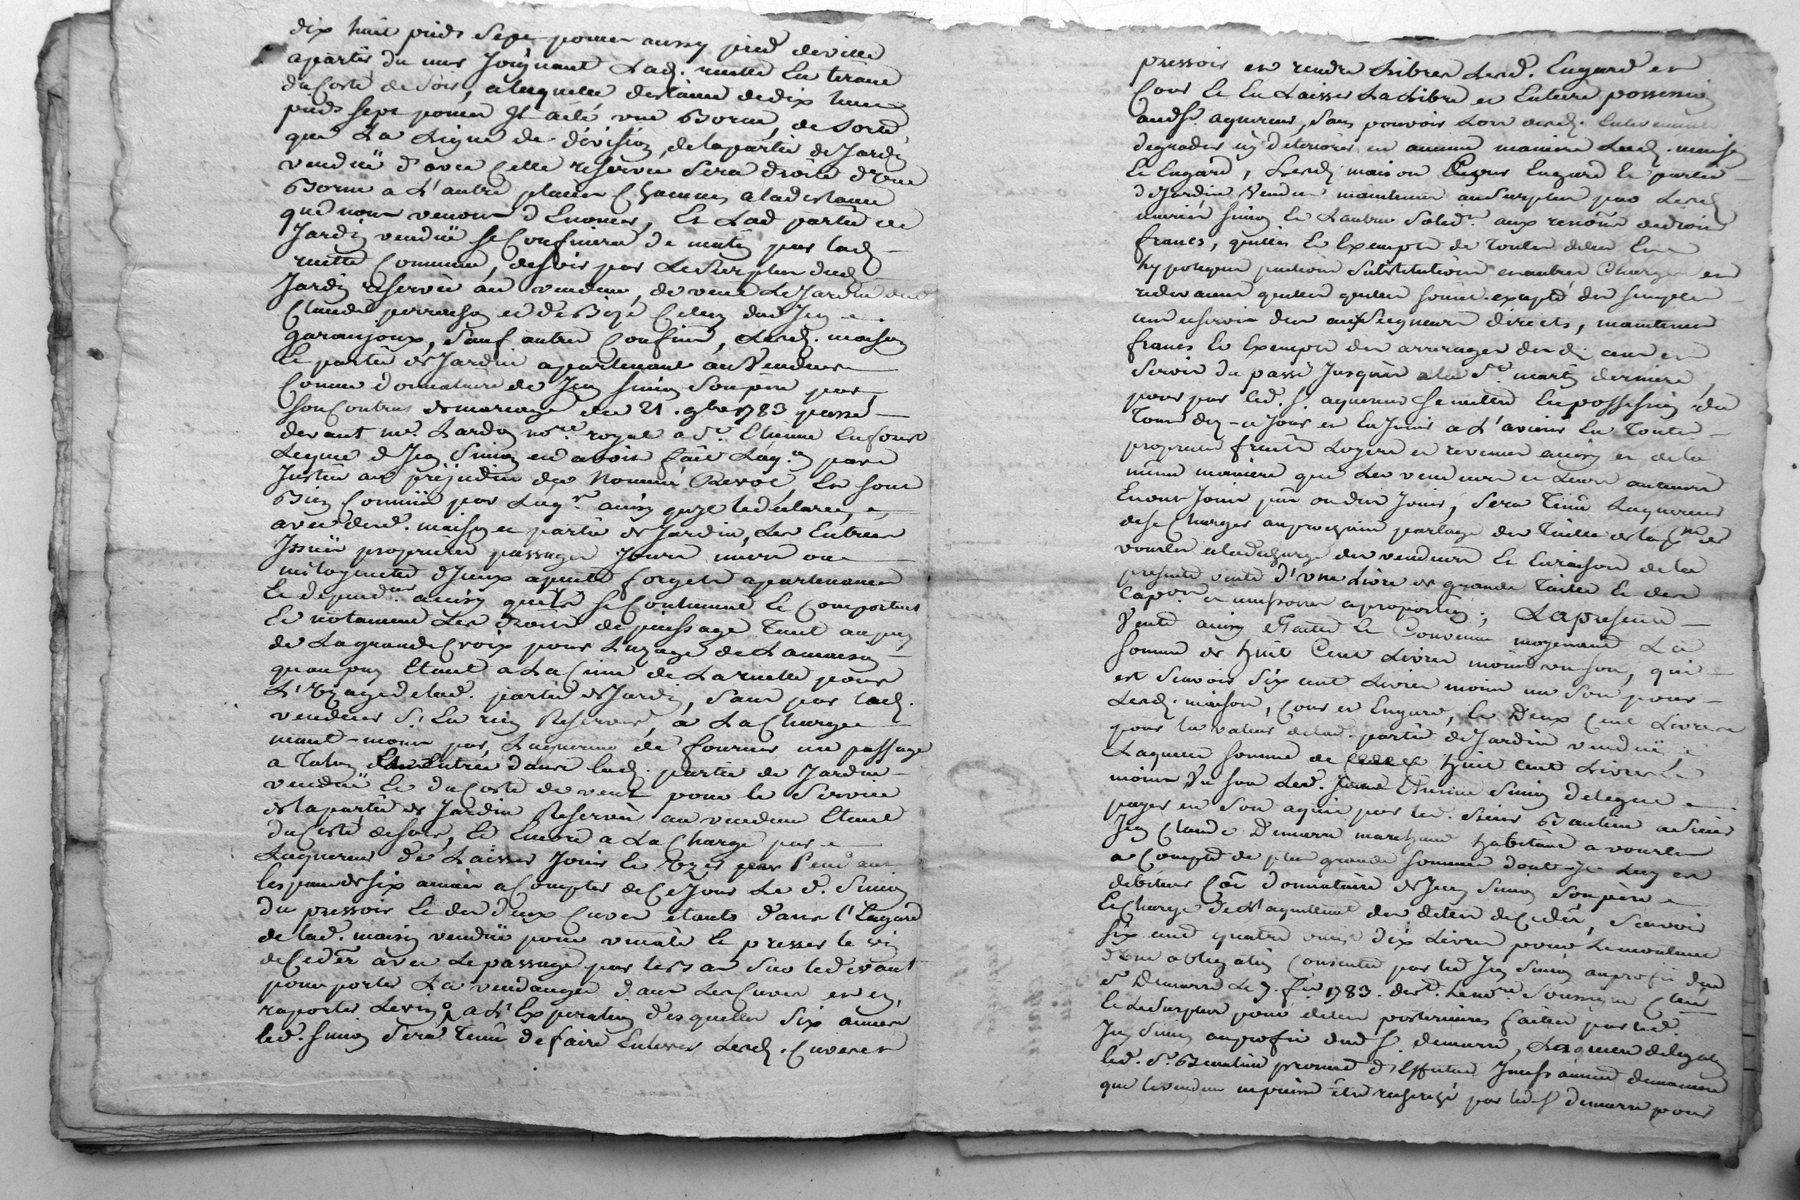 dix huit pieds sept pouces aussy pied de ville
a partir du mur Joignant Lad. ruette En tirant
du Costé de Soir, a laquelle distance de dix huit
pieds sept pouces Il a eté une Borne, de sorte
que La Ligne de division, de la partie de Jardin
venduë d'avec Celle reservée Sera droite d'une
Borne a L'autre placées a la distance
que nous venons d'Enoncer, Et Lad. partie de
Jardin venduë se Confinera de matin par lad.
ruette Commune, de soir par Le Surplus dud.
Jardin reservée au vendeur, de vent Le Jardin de
Claude perrachon et de Bize Celuy de Jean
garanjoux, Sauf autres Confins, Lesd. maison
Et partie de Jardin apartenant au Vendeur
Comme donnataire de Jean Simon Son pere par
Son Contrat de mariage du 21. 9bre 1783 passé
devant me. Lardon nore. royal a St. Etienne En forest
Lequel d. Jean Simon en avoit fait L'aqon. par
Justice au préjudice du Nommé Revol, Et sont
Bien Connuë par L'aqr. ainsy qu'il le déclare,
avec desd. maison et partie de Jardin, Les Entrées
Issuës proprietés passages Jours murs ou
mitoyennetés d'Iceux apuits forgets apartenances
Et dependces ainsy qu'ils se Contiennent Et Comportent
Et notament Les droits de puisage Tant au puy
de La grande Croix pour L'uzage de La maison
qu'au puy Etant a La Cime de La ruette pour
L'Uzage de lad. partie de Jardin, Sans par led.
vendeur S'En rien Reserver, a La Charge
neant-moins par L'aquereur de fournir un passage
a Talon Entrée dans lad. partie de Jardin
venduë Et du Costé de vent pour le Service
de la partie de Jardin Reservée au vendeur Etant
du Costé de soir, Et Encore a La Charge par
L'aquereur de Laisser Jouir Et Uzer Pendant
l'espace de six années a Compter de Ce Jour Le d. Simon
du pressoir Et des deux Cuves étants dans l'Engard
de lad. maison venduë pour Et presser le vin
avec Le passage par led. devant
pour porter La vendange dans Les Cuves et en
raporter Le vin, a L'Expiration desquelles Six années
led. Simon Sera Tenu de faire Enlever Lesd. Cuves et
pressoir et rendre Libres Lesd. Engard et
Cour Et En Laisser La Libre et Entiere possession
audt. aquereur, Sans pouvoir Lors dud. Enlevement
degrader ny déteriorer en aucune maniere Lesd. maison
Et Engard, Lesd. maison Engard Et partie
de Jardin Vendus maintenus au Surplus par Lesd.
Simon Et L'autre Solidt. aux renons de droit
francs, quittes Et Exempts de Toutes dettes
hypoteques pactions Substitutions Charges et
redevances quelles quelles soient excepté des simples
cens et servis dus aux Seigneurs directs, maintenus
francs Et Exempts des arrerages desd. cens et
Servis du passé Jusques a la St. martin derniere,
pour par led. S. aquereur Se mettre En possession du
Tout dez-a Jour et En Jouir a L'avenir En Toute
proprieté fruits Loyers et revenus ainsy et de la
même maniere que Les vendeurs et Leurs auteurs
En ont Joui pu ou dus Jouir, Sera Tenu L'aquereur
de se Charger au prochain partage des Tailles de la psse. de
vourles a la decharge des vendeurs Et En raison de la
presente vente d'une Livre de grande Taille Et des
Capon. et a proportion; La presente
Vente ainsy faite Et Convenue moyenant La
Somme de huit Cent Livres moins un Sou, qui
est Scavoir Six cent Livres moins un Sou pour
Lesd. maison, Cour et Engard, Et Deux Cent Livres
pour la valeur de lad. partie de Jardin venduë,
Laquelle Somme de huit Cent Livres
moins Un Sou Led. Etienne Simon delegue
payer en Son aquit par led. Sieur Bautiau a Sieur
Jean Claude Demurre marchand habitant a vourles
a Compte de plus grande Somme dont il Luy est
debiteur Coe. donnataire de Jean Simon Son père
Et Chargé de L'aquittement des dettes de Ce dr., Scavoir
six cent quatre vingt dix Livres pour Le montant
d'une obligation Consentie par led. Jean Simon au profit dud.
S. Demurre Le 7. fer. 1783. devt. Le nore. Soussigné
Et Le Surplus pour dettes posterieures faites par led.
Jean Simon au profit dud. S. demurre, Laquelle delegation
led. S. Bautiau promet d'Effectuer Incessament de maniere
que le vendeur ne puisse être recherché par led. S. demurre pour